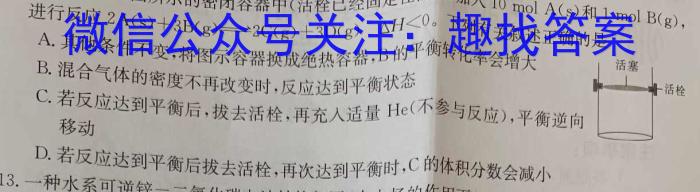 所示的密闭容器中(活栓已经固定
加入10 mol A(s)和1 mol B(g),
进行反应
ΔH<0。
微信公众号关注:趣找答案
A.其他条件不变,将图示容器换成绝热容器,B的平衡转化率会增大
B.混合气体的密度不再改变时,反应达到平衡状态
C.若反应达到平衡后,拔去活栓,再充入适量 He(不参与反应),平衡逆向
移动
D.若反应达到平衡后拔去活栓,再次达到平衡时,C的体积分数会减小
活塞
活栓
13.一种水系可逆锌